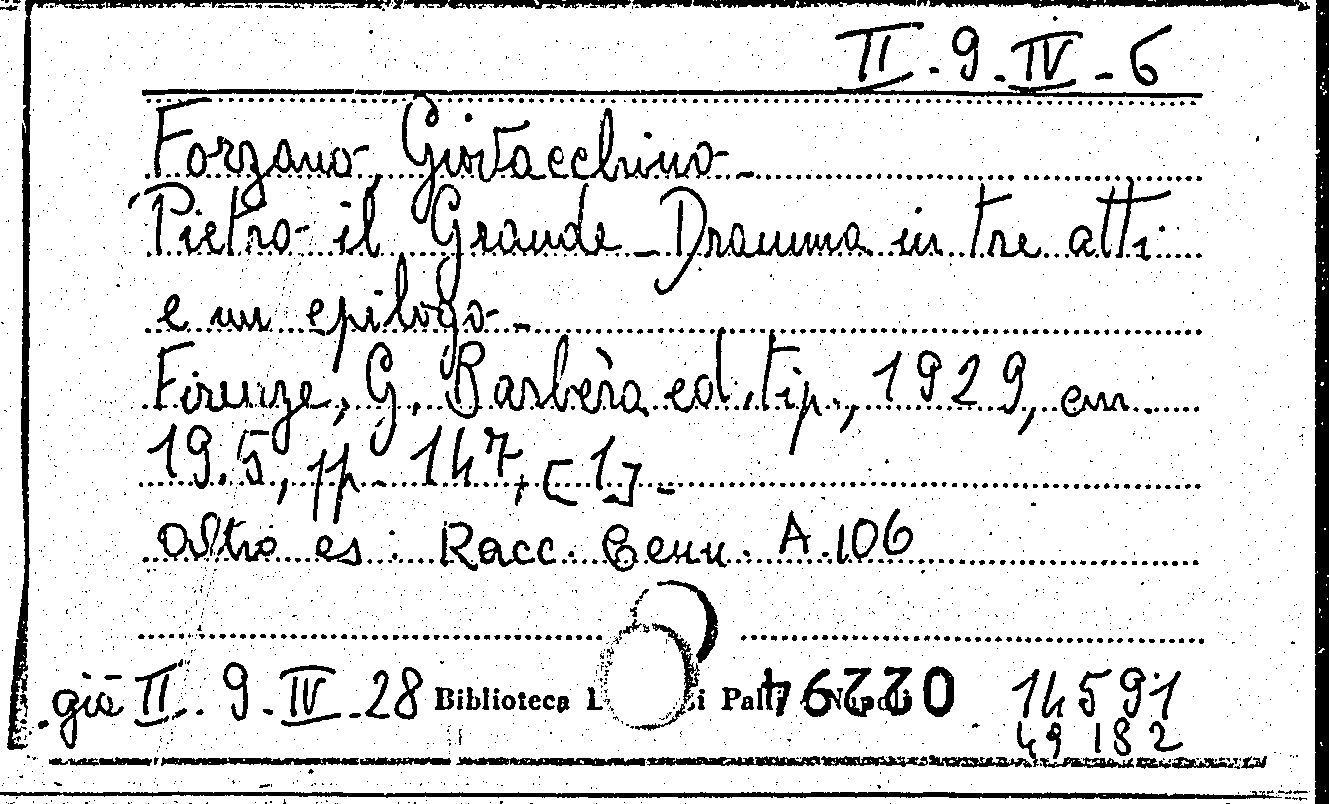 II.9.IV-6
Forzano, Giovacchino-
Pietro il Grande-Dramma in tre atti
e un epilogo-
Firenze, G. Barbèra ed. tip., 1929, cm
19.5, pp. 147, [1]-
altro es: Racc. A.106
già II.9.IV-28 Biblioteca L i Pal 022294 14591
49182